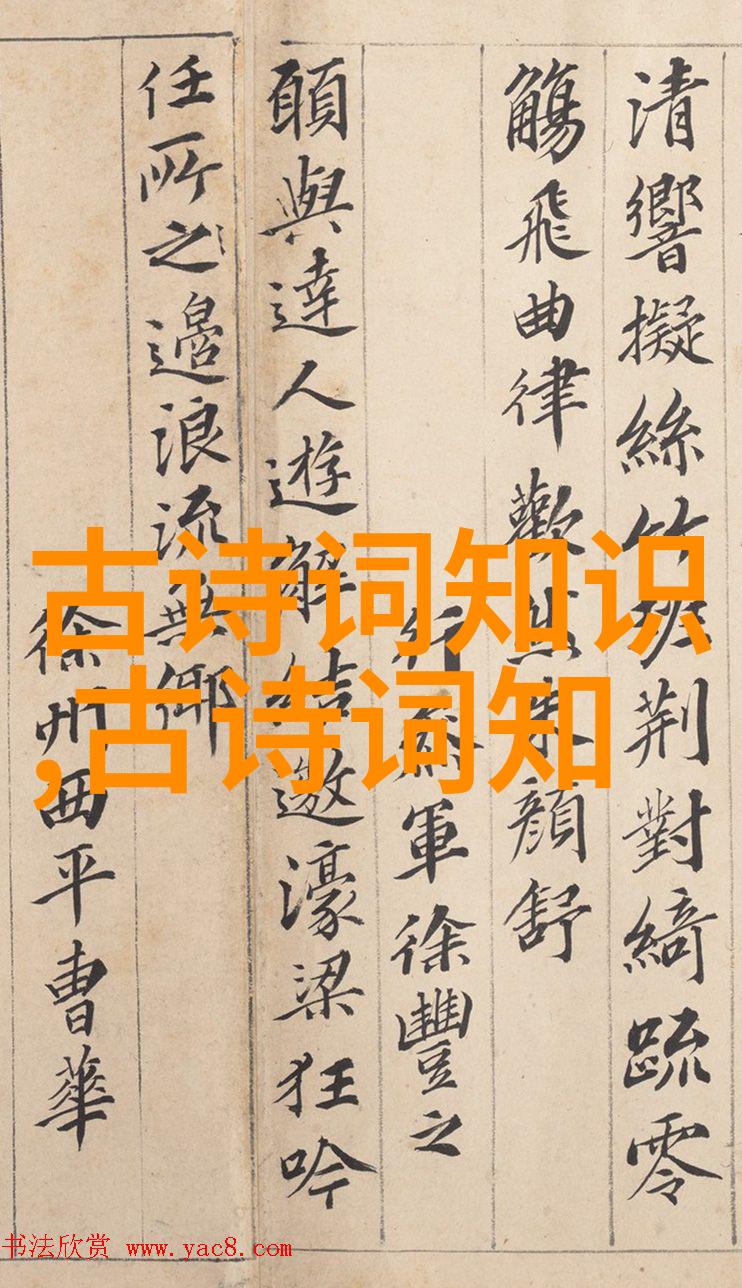 清響擬絲竹班荊對綺疏零
觴飛曲律歡然朱顏舒
行參軍徐豐之
願與達人遊解結遨濠梁狂吟
任所之邉浪流無鄉
徐州西平曹華
古诗词知识
,古诗词知
书法欣赏 www.yac8.com